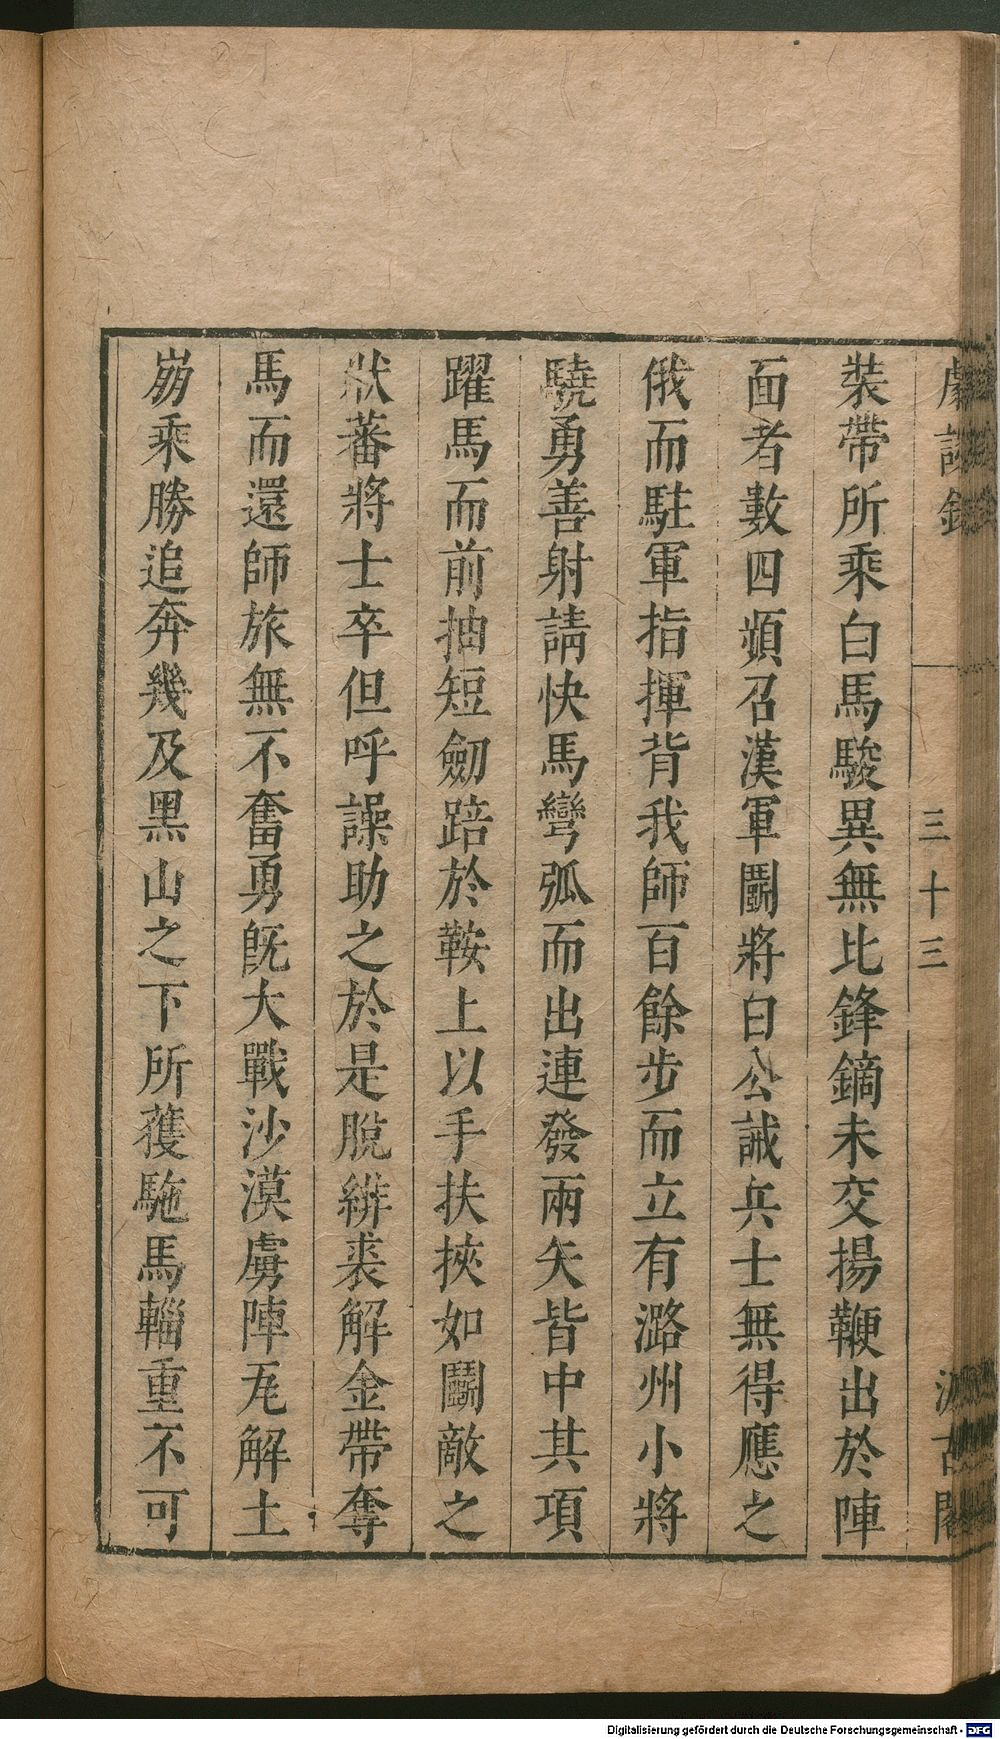 劇談錄
三十三
汲古閣
裝帶所乘白馬駿異無比鋒鏑未交揚鞭出於陣
面者數四頻召漢軍鬭將白公誡兵士無得應之
俄而駐軍指揮背我師百餘步而立有潞州小將
驍勇善射請快馬彎弧而出連發兩矢皆中其項
躍馬而前抽短劒踣於鞍上以手扶挾如鬭敵之
狀蕃將士卒但呼譟助之於是脫緋裘解金帶奪
馬而還師旅無不奮勇旣大戰沙漠虜陣瓦解土
崩乘勝追奔幾及黑山之下所獲駞馬輜重不可
Digitalisierung gefördert durch die Deutsche Forschungsgemeinschaft - DFG